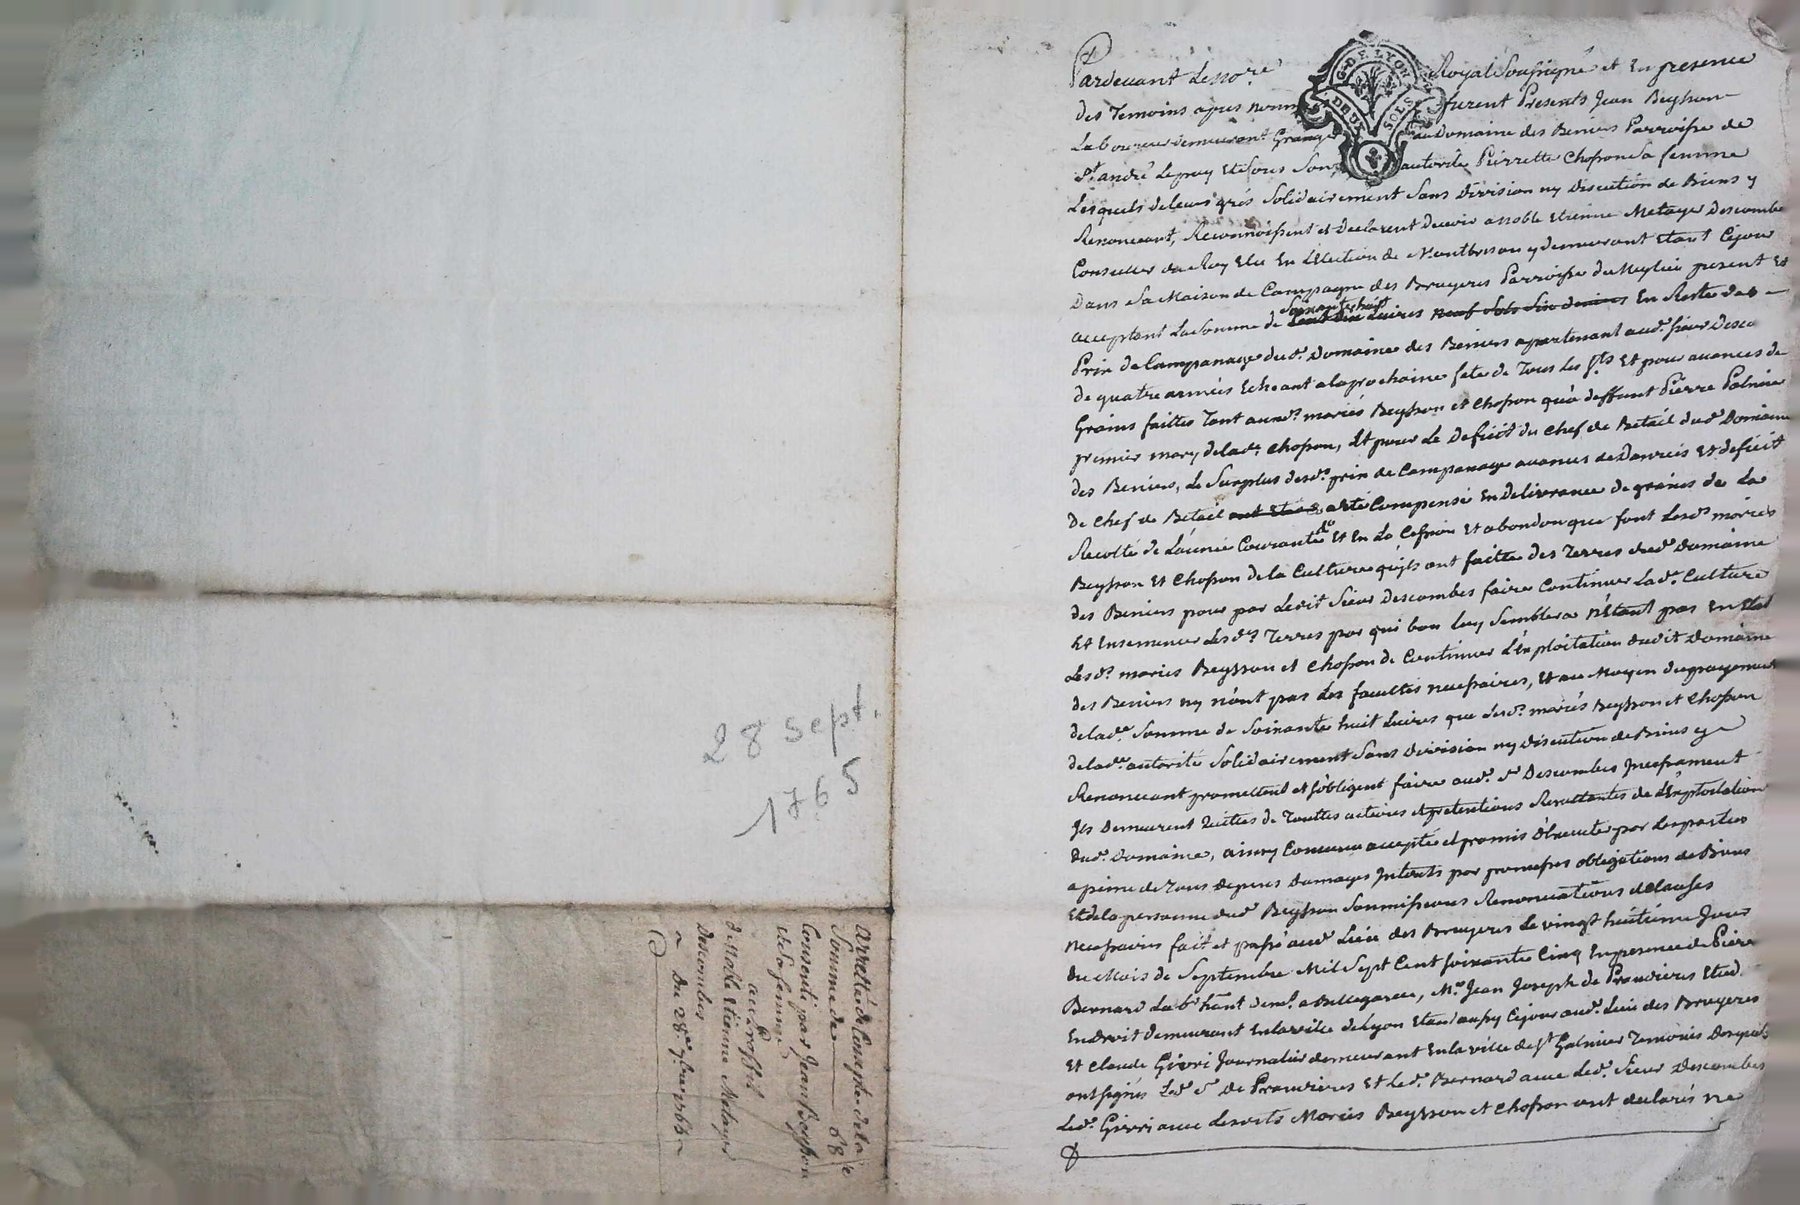 28 Sept.
1765
arretté de Compte de la
Somme de 68 lt
Consenti par Jean Beysson
et sa femme
au proffit
de Noble Etienne Metayer
Descombes
Du 28e 7bre 1765
G. DE LYON
DEUX SOLS
Pardevant Le No.re Royal Soussigné et En presence
des Temoins apres nommés furent Presents Jean Beysson
Laboureur demeurant Granger au Domaine des Beniers Parroisse de
St. andré Lepuy Et de sous Son autorité Pierrette Chosson Sa femme
Lesquels de leurs grés Solidairement Sans Division ny Discution de Biens y
Renoncant, Reconnoissent et Declarent devoir a noble Etienne Metayer Descombes
Conseiller du Roy Elu En L'Election de Montbrison y demeurant Etant Cejour
Dans Sa Maison de Campagne des Bruyeres Parroisse de present Et
Soixante huit
acceptant La Somme de Livres neuf Sols Six deniers En Reste des
Prix de Campanage dud. Domaine des Beniers apartenant aud. Sieur
de quatre années Echeant a la prochaine fete de Tous Les Sts Et pour avances de
Grains faittes Tant auxd. mariés Beysson et Chosson qu'à deffunt Pierre
premier mary de lad. Chosson, Et pour Le Deficit du Chef de Betail dud. Domaine
des Beniers, Le Surplus desd. prix de Campanage avances de Danrées Et deficit
de Chef de Betail a eté Compensé En delivrance de graines de La
Recolte de L'année Courante Et En La Cession Et abondon que font Lesd. mariés
Beysson Et Chosson de la Culture qu'ils ont faitte des Terres dud. Domaine
des Beniers pour par Ledit Sieur Descombes faire Continuer Lad. Culture
Et Ensemencer Lesd. Terres par qui bon Luy Semblera N'Etant pas En Etat
Lesd. mariés Beysson et Chosson de Continuer L'Exploitation dudit Domaine
des Beniers ny n'ont pas Les facultés necessaires, Et au Moyen du payement
de lad. Somme de Soixante huit Livres que Lesd. mariés Beysson et Chosson
de lad. autorité Solidairement Sans Division ny Discution de Biens y
Renoncant promettent et s'obligent faire aud. Sr Descombes Incessament
Ils Demeurent Quittes de Touttes actions Et pretentions Resultantes de L'Exploitation
dud. Domaine, ainsy Convenu accepté et promis d'Executer par Les parties
a peine de Tous Depens Domages Interets par promesses obligations de Biens
Et de la personne dud. Beysson Soumissions Renonciations et Clauses
Necessaires fait et passé aud. Lieu des Bruyeres Le vingt huitieme Jour
du Mois de Septembre Mil Sept Cent Soixante Cinq En presence de Pierre
Bernard demt. a Bellegarde, Mr. Jean Joseph de Pravieres Etud.
En Droit demeurant En La ville de Lyon Etant aussy Cejour aud. Lieu des Bruyeres
Et Claude Givri Journalier demeurant En la ville de St Galmier Temoins Desquels
ont signés Led. Sr de Pravieres Et Led. Bernard avec Led. Sieur Descombes
Led. Givri avec Lesdits Mariés Beysson et Chosson ont declarés ne